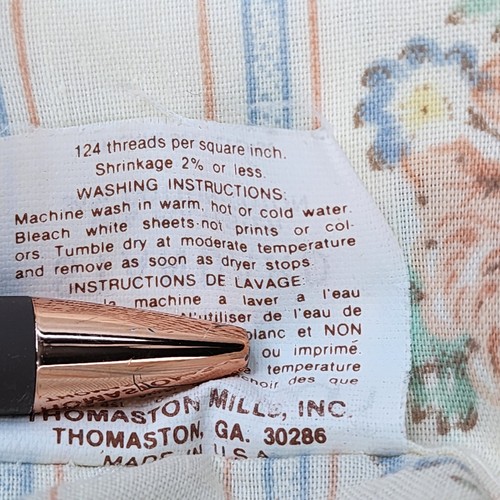 124 threads per square inch.
Shrinkage 2% or less.
WASHING INSTRUCTIONS:
Machine wash in warm, hot or cold water.
Bleach white sheets not prints or col-
ors. Tumble dry at moderate temperature
and remove as soon as dryer stops.
INSTRUCTIONS DE LAVAGE:
la machine a laver a l'eau
N'utiliser de l'eau de
blanc et NON
ou imprimé.
temperature
des que
THOMASTON MILLS, INC.
THOMASTON, GA. 30286
MADE IN U.S.A.